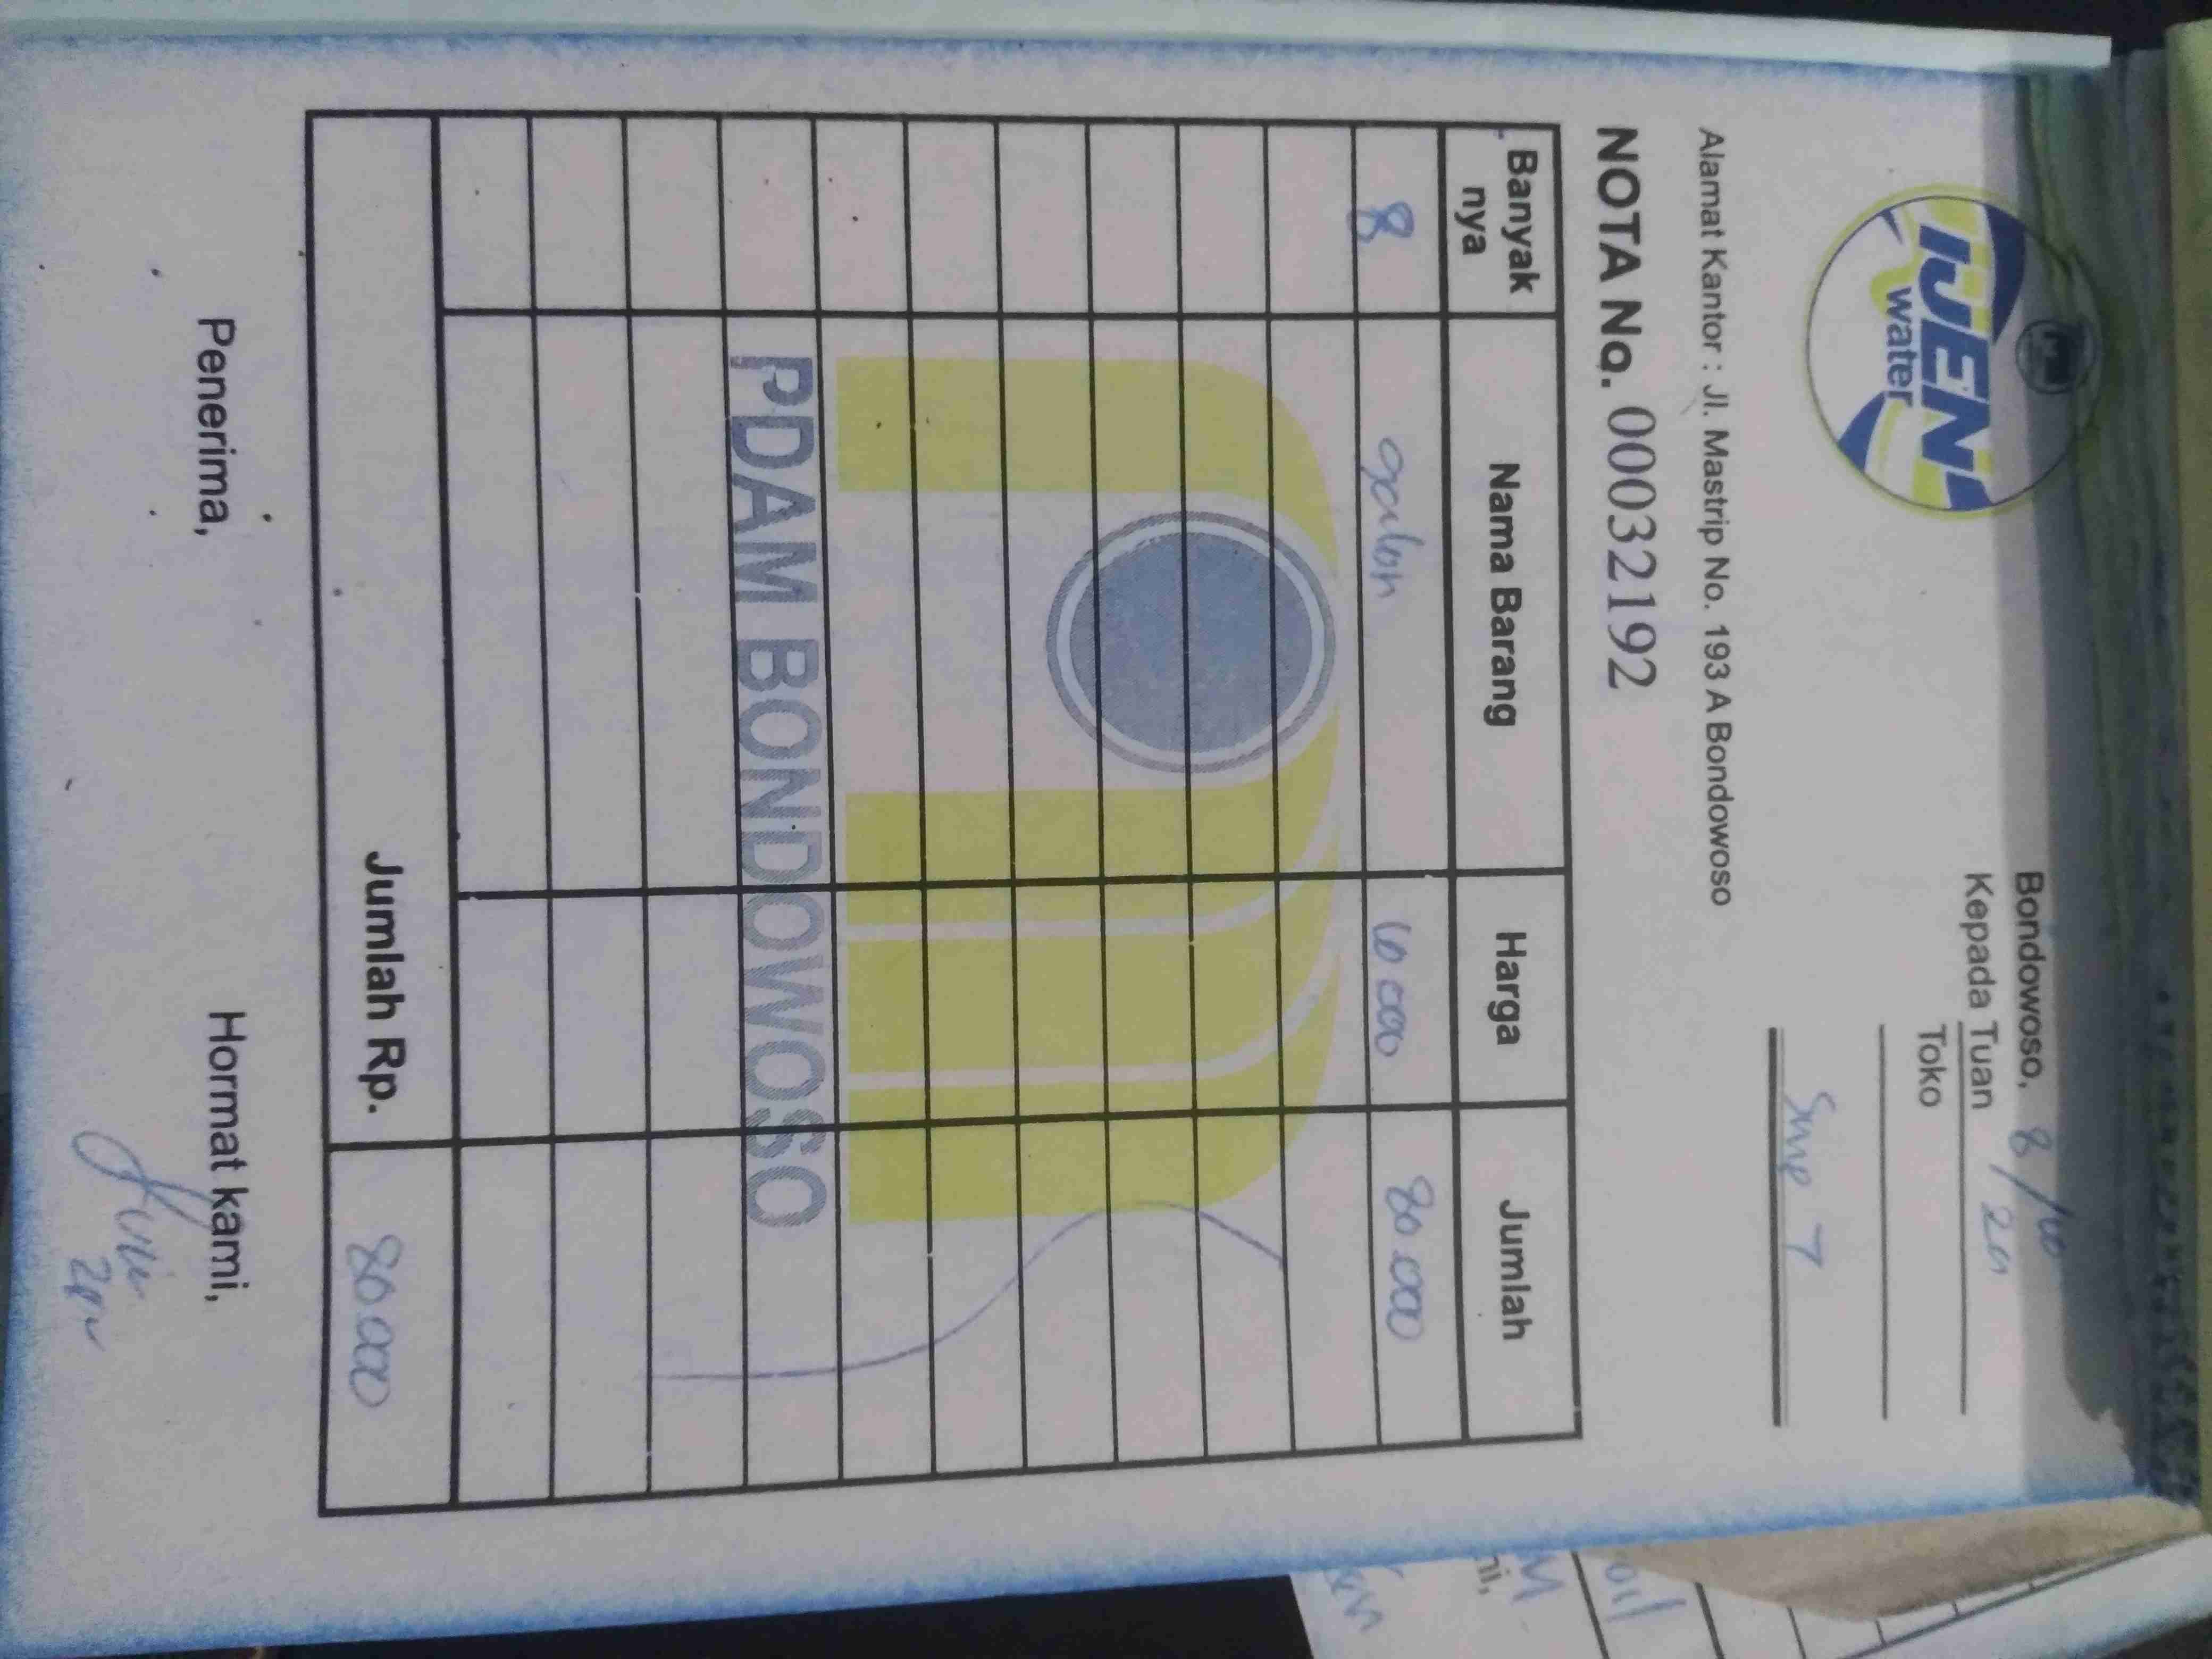 IJEN
water
Bondowoso, 8/10
Kepada Tuan
Toko
Smp 7
Alamat Kantor : Jl. Mastrip No. 193 A Bondowoso
NOTA No. 00032192
Banyak nya Nama Barang Harga Jumlah
8 galon 10 000 80.000
PDAM BONDOWOSO
Jumlah Rp. 80.000
Penerima, Hormat kami,